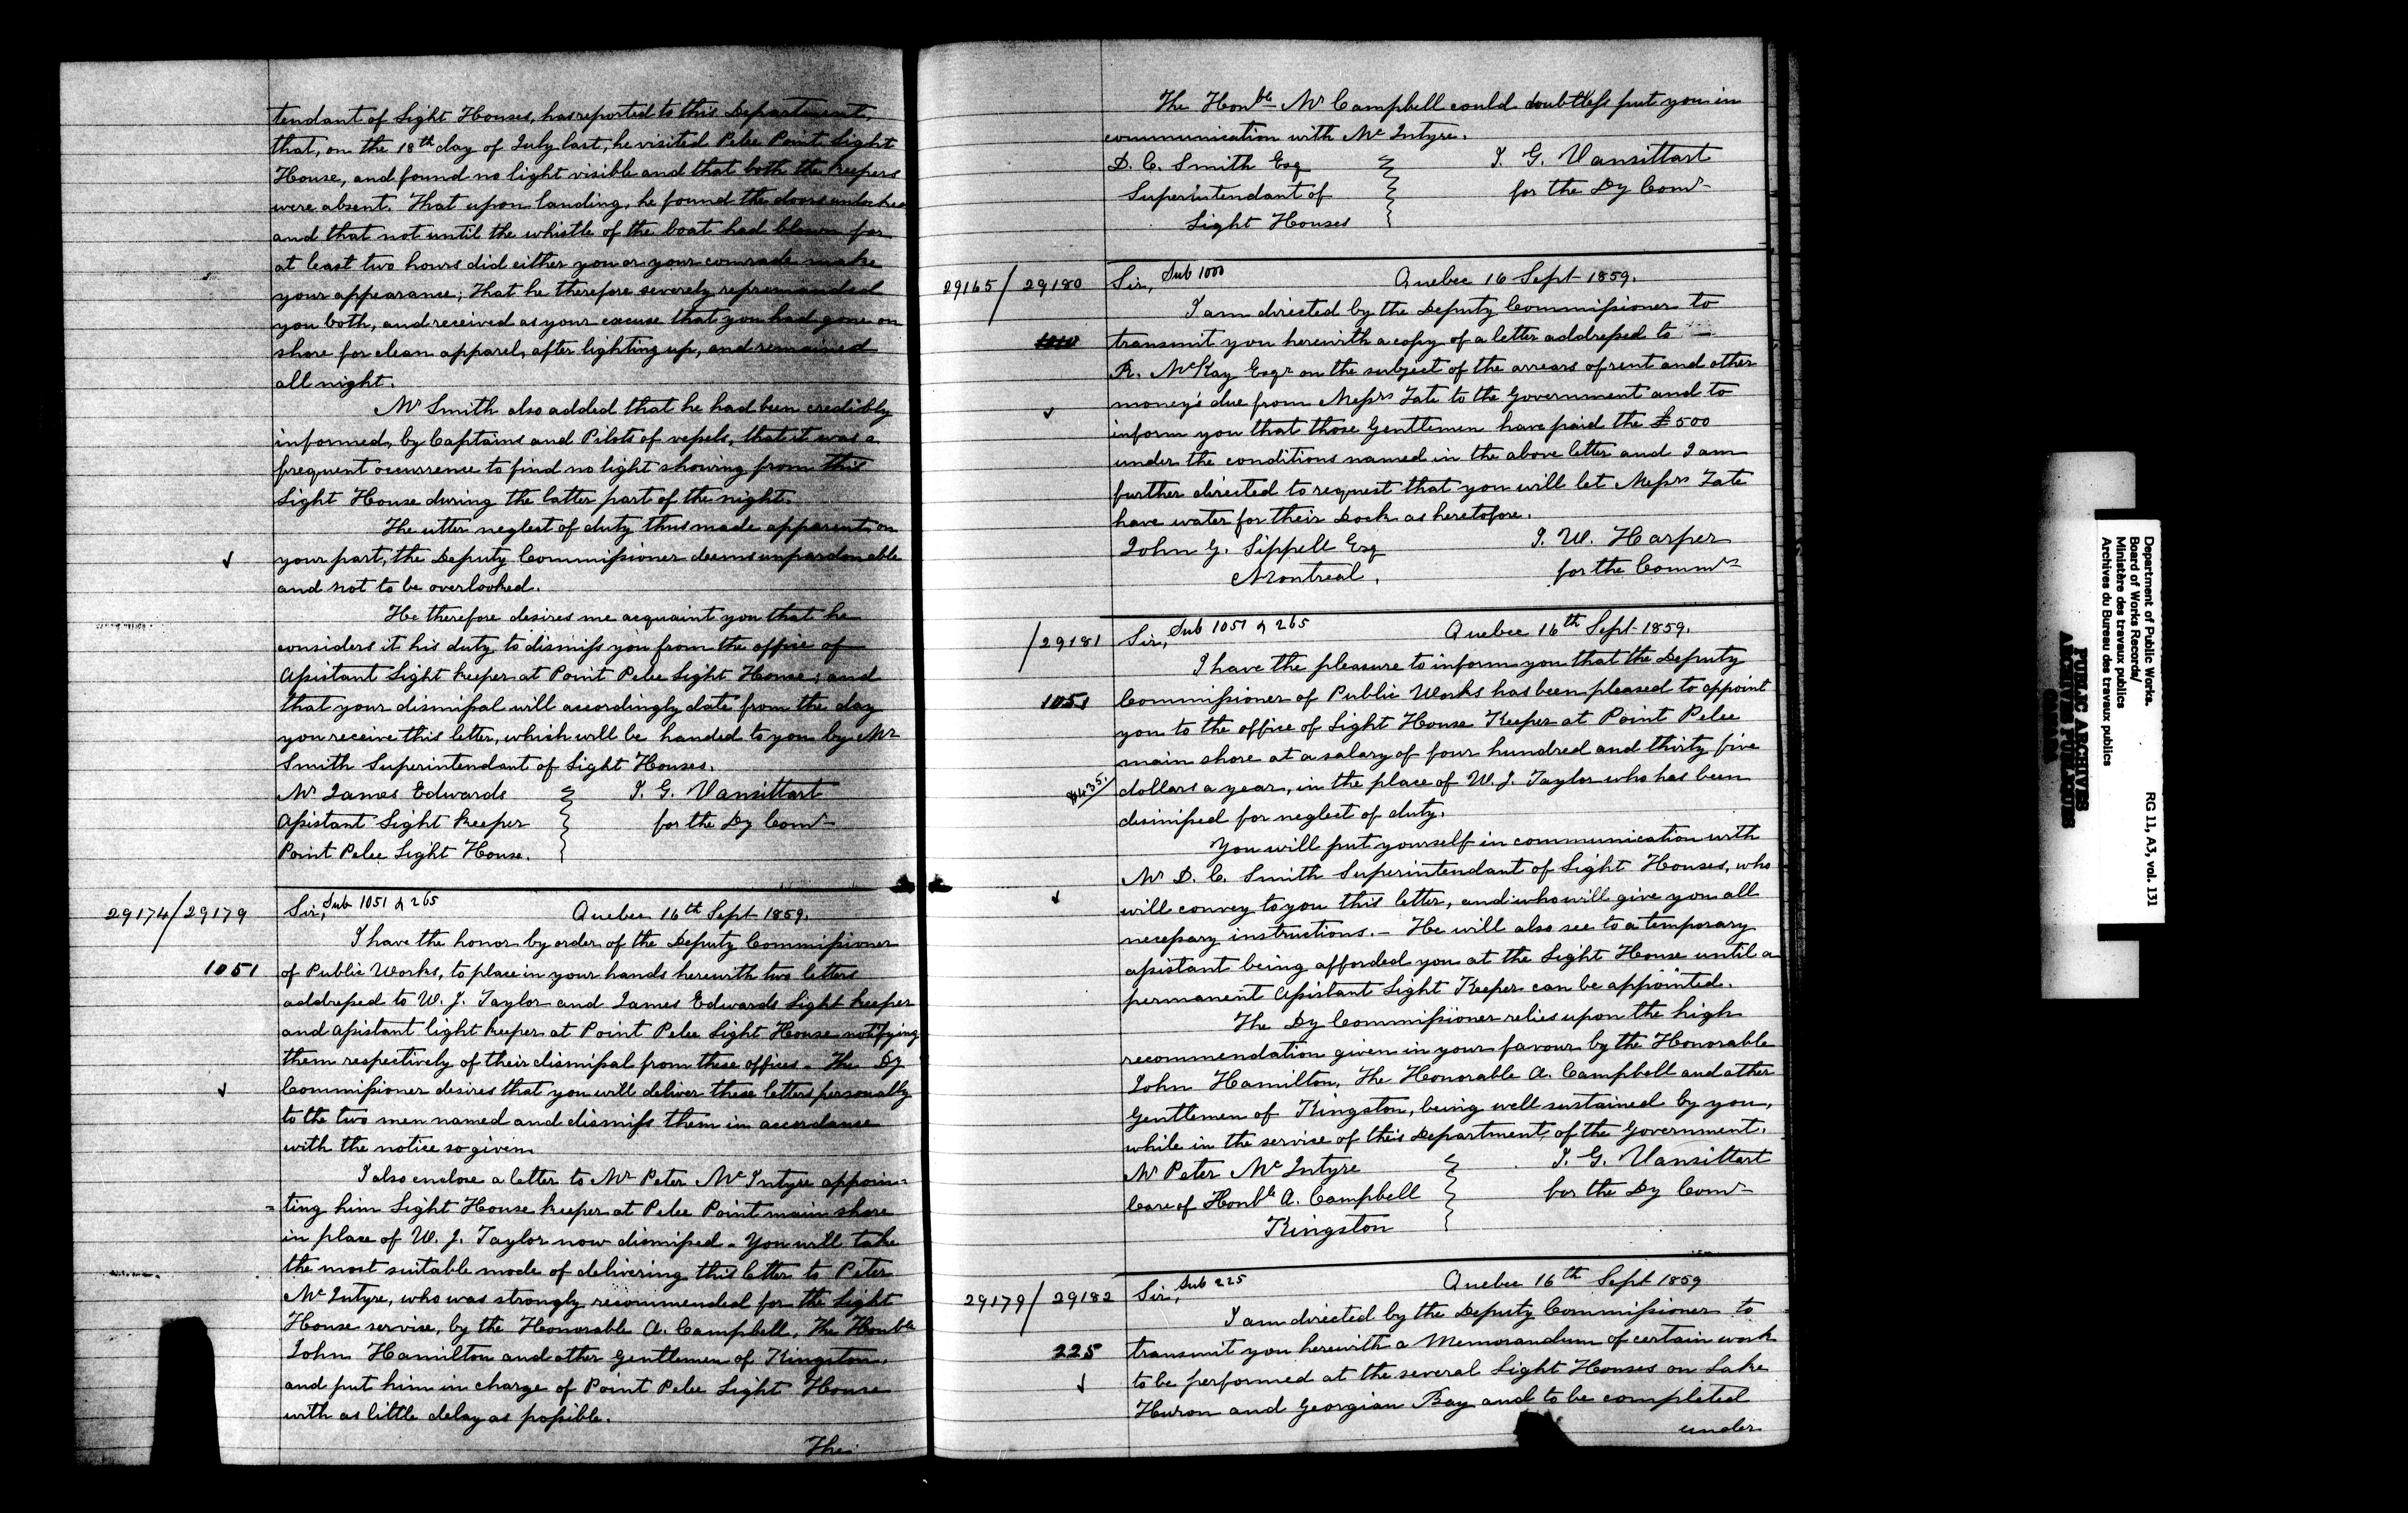 tendant of Light Houses, has reported to this Department,
that, on the 18th day of July last, he visited Pelee Point Light
House, and found no light visible and that both the keepers
were absent. That upon landing, he found the doors unlocked
and that not until the whistle of the boat had blown for
at least two hours did either you or your comrade make
your appearance; That he therefore severely repremanded
you both, and received as your excuse that you had gone on
shore for clean apparel, after lighting up, and remained
all night.
Mr Smith also added that he had been credibly
informed, by Captains and Pilots of vessels, that it was a
frequent occurrence to find no light showing from this
Light House during the latter part of the night.
The utter neglect of duty thus made apparent on
your part, the Deputy Commissioner deems unpardonable
and not to be overlooked.
He therefore desires me acquaint you that he
considers it his duty to dismiss you from the office of
Assistant Light keeper at Point Pelee Light House; and
that your dismissal will accordingly date from the day
you receive this letter, which will be handed to you by Mr
Smith Superintendant of Light Houses.
Mr James Edwards
Assistant Light keeper
Point Pelee Light House.
T. G. Vansittart
for the Dy Comr
29174/29179
Sir, Sub 1051 & 265 Quebec 16th Sept 1859.
I have the honor by order of the Deputy Commissioner
1051
of Public Works, to place in your hands herewith two letters
addressed to W. J. Taylor and James Edwards Light keeper
and assistant light keeper at Point Pelee Light House notifying
them respectively of their dismissal from these offices - The Dy
Commissioner desires that you will deliver these letters personally
to the two men named and dismiss them in accordance
with the notice so given.
I also enclose a letter to Mr Peter McIntyre appoin=
=ting him Light House keeper at Pelee Point main shore
in place of W. J. Taylor now dismissed - You will take
the most suitable mode of delivering this letter to Peter
McIntyre, who was strongly recommended for the Light
House service, by the Honorable A. Campbell, The Honble
John Hamilton and other Gentlemen of Kingston,
and put him in charge of Point Pelee Light House
with as little delay as possible.
The
The Honble Mr Campbell could doubtless put you in
communication with McIntyre.
D. C. Smith Esq
Superintendant of
Light Houses
T. G. Vansittart
for the Dy Comr
29165/29180
Sir, Sub 1000 Quebec 16 Sept 1859.
I am directed by the Deputy Commissioner to
transmit you herewith a copy of a letter addressed to —
R. McKay Esqr on the subject of the arrears of rent and other
money's due from Messrs Tate to the Government and to
inform you that those Gentlemen have paid the £500
under the conditions named in the above letter and I am
further directed to request that you will let Messrs Tate
have water for their Dock as heretofore.
John G. Sippell Esq
Montreal.
T. W. Harper
for the Commr
/29181
Sir, Sub 1051 & 265 Quebec 16th Sept 1859.
I have the pleasure to inform you that the Deputy
1051
Commissioner of Public Works has been pleased to appoint
you to the office of Light House Keeper at Point Pelee
main shore at a salary of four hundred and thirty five
$435.
dollars a year, in the place of W. J. Taylor who has been
dismissed for neglect of duty.
You will put yourself in communication with
Mr D. C. Smith Superintendant of Light Houses, who
will convey to you this letter, and who will give you all
necessary instructions. - He will also see to a temporary
assistant being afforded you at the Light House until a
permanent Assistant Light Keeper can be appointed.
The Dy Commissioner relies upon the high
recommendation given in your favour by the Honorable
John Hamilton, The Honorable A. Campbell and other
Gentlemen of Kingston, being well sustained by you,
while in the service of this Department, of the Government.
Mr Peter McIntyre
Care of Honble A. Campbell
Kingston
T. G. Vansittart
for the Dy Comr
29179/29182
Sir, Sub 225 Quebec 16th Sept 1859
I am directed by the Deputy Commissioner to
225
transmit you herewith a Memorandum of certain work
to be performed at the several Light Houses on Lake
Huron and Georgian Bay and to be completed
under
Department of Public Works.
Board of Works Records/
Ministère des travaux publics
Archives du Bureau des travaux publics
RG 11, A3, vol. 131
PUBLIC ARCHIVES
ARCHIVES PUBLIQUES
CANADA